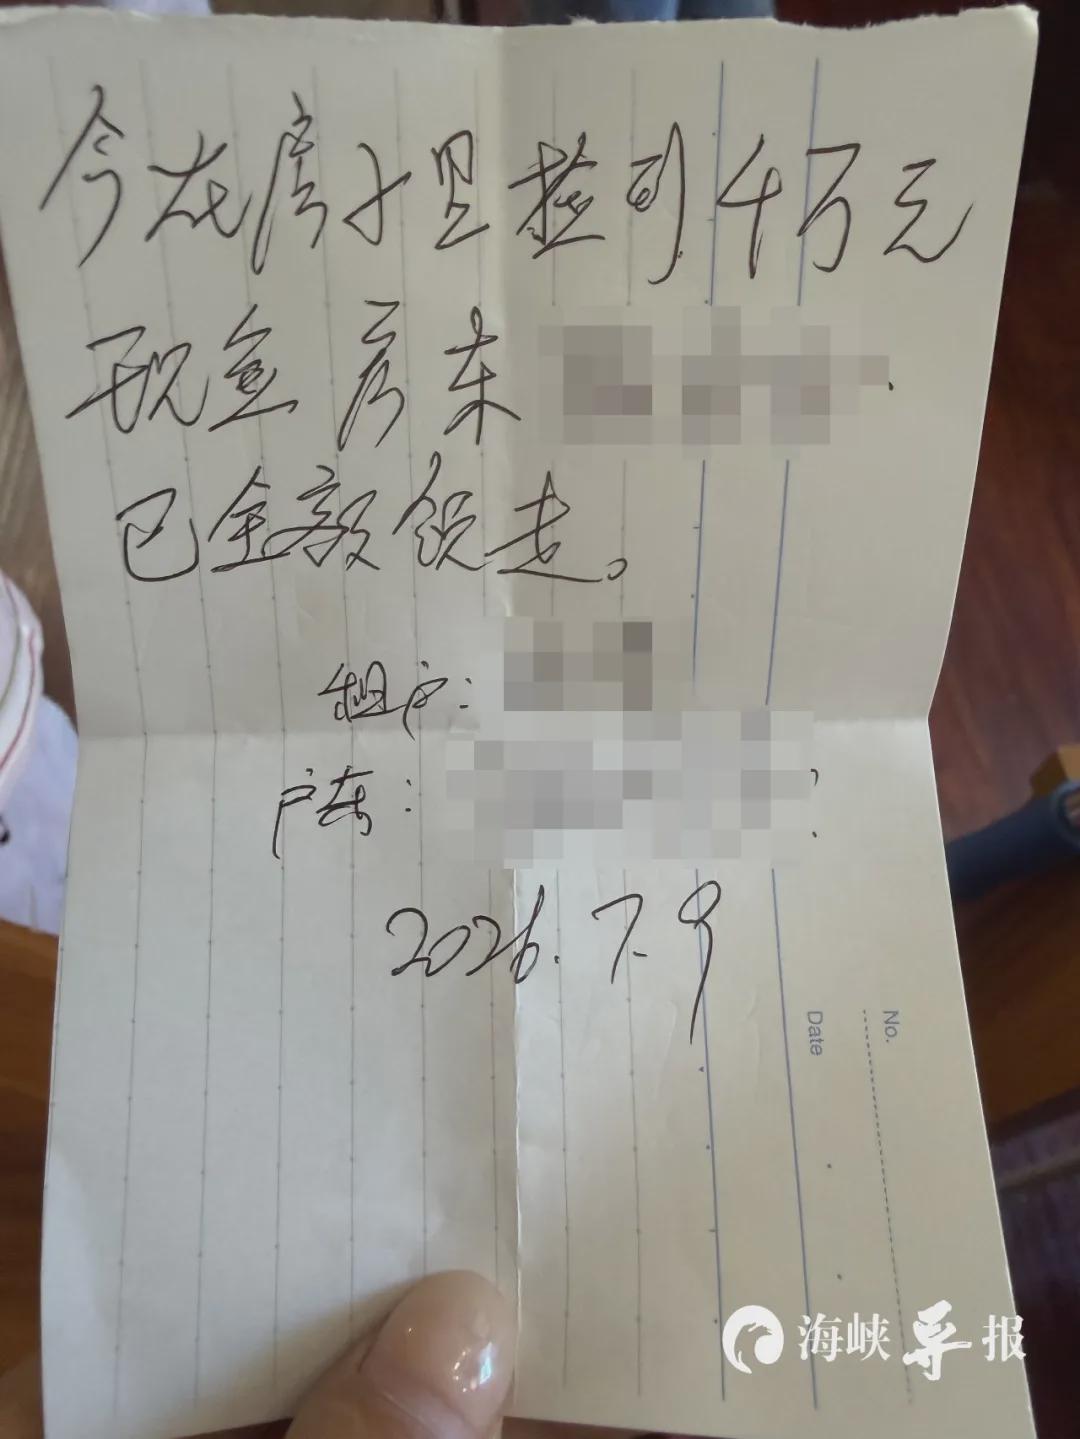 今在房子里捡到4万元
现金 房东
已全数领走。
租户：
户东：
2026.7.9
No.
Date
海峡导报